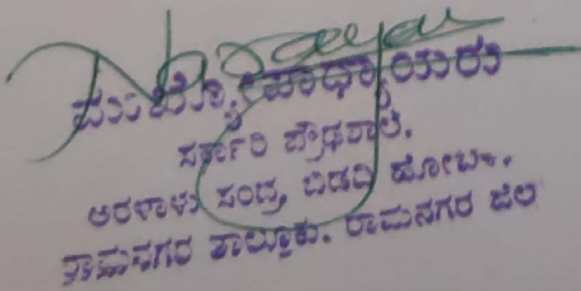 ಮುಖ್ಯೋಪಾಧ್ಯಾಯರು
ಸರ್ಕಾರಿ ಪ್ರೌಢಶಾಲೆ.
ಅರಳಾಳು ಸಂದ್ರ, ಬಿಡದಿ ಹೋಬಳಿ.
ರಾಮನಗರ ತಾಲ್ಲೂಕು. ರಾಮನಗರ ಜಿಲ